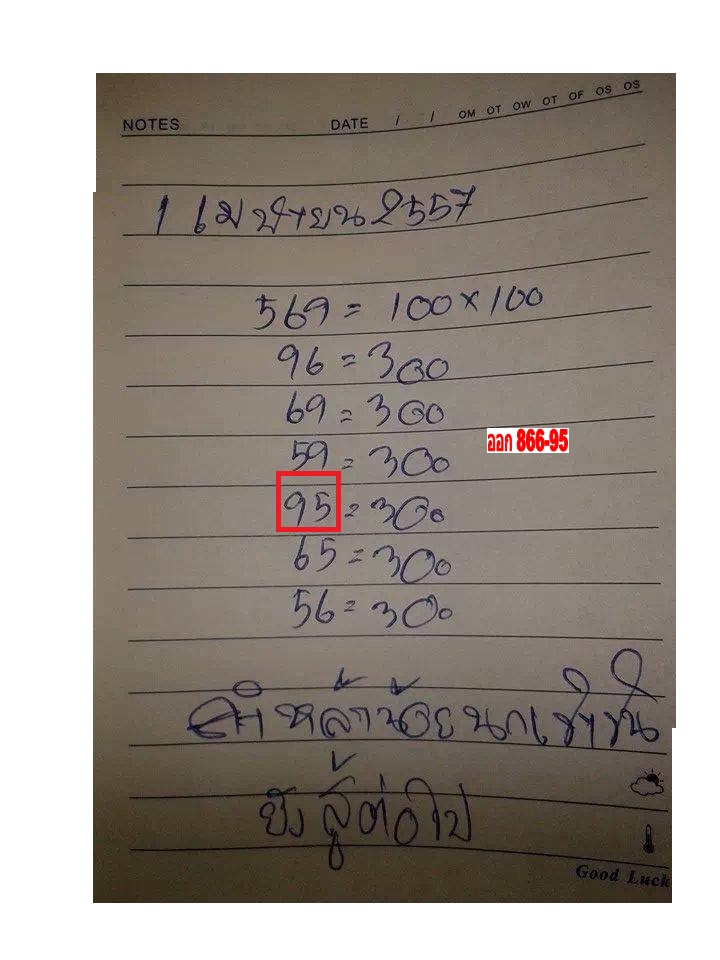 NOTES DATE / / OM OT OW OT OF OS OS
1 เมษายน 2557
569 = 100 x 100
96 = 300
69 = 300
59 = 300
ออก 866-95
95 = 300
65 = 300
56 = 300
หล้าน้อย
ยังสู้ต่อไป
Good Luck